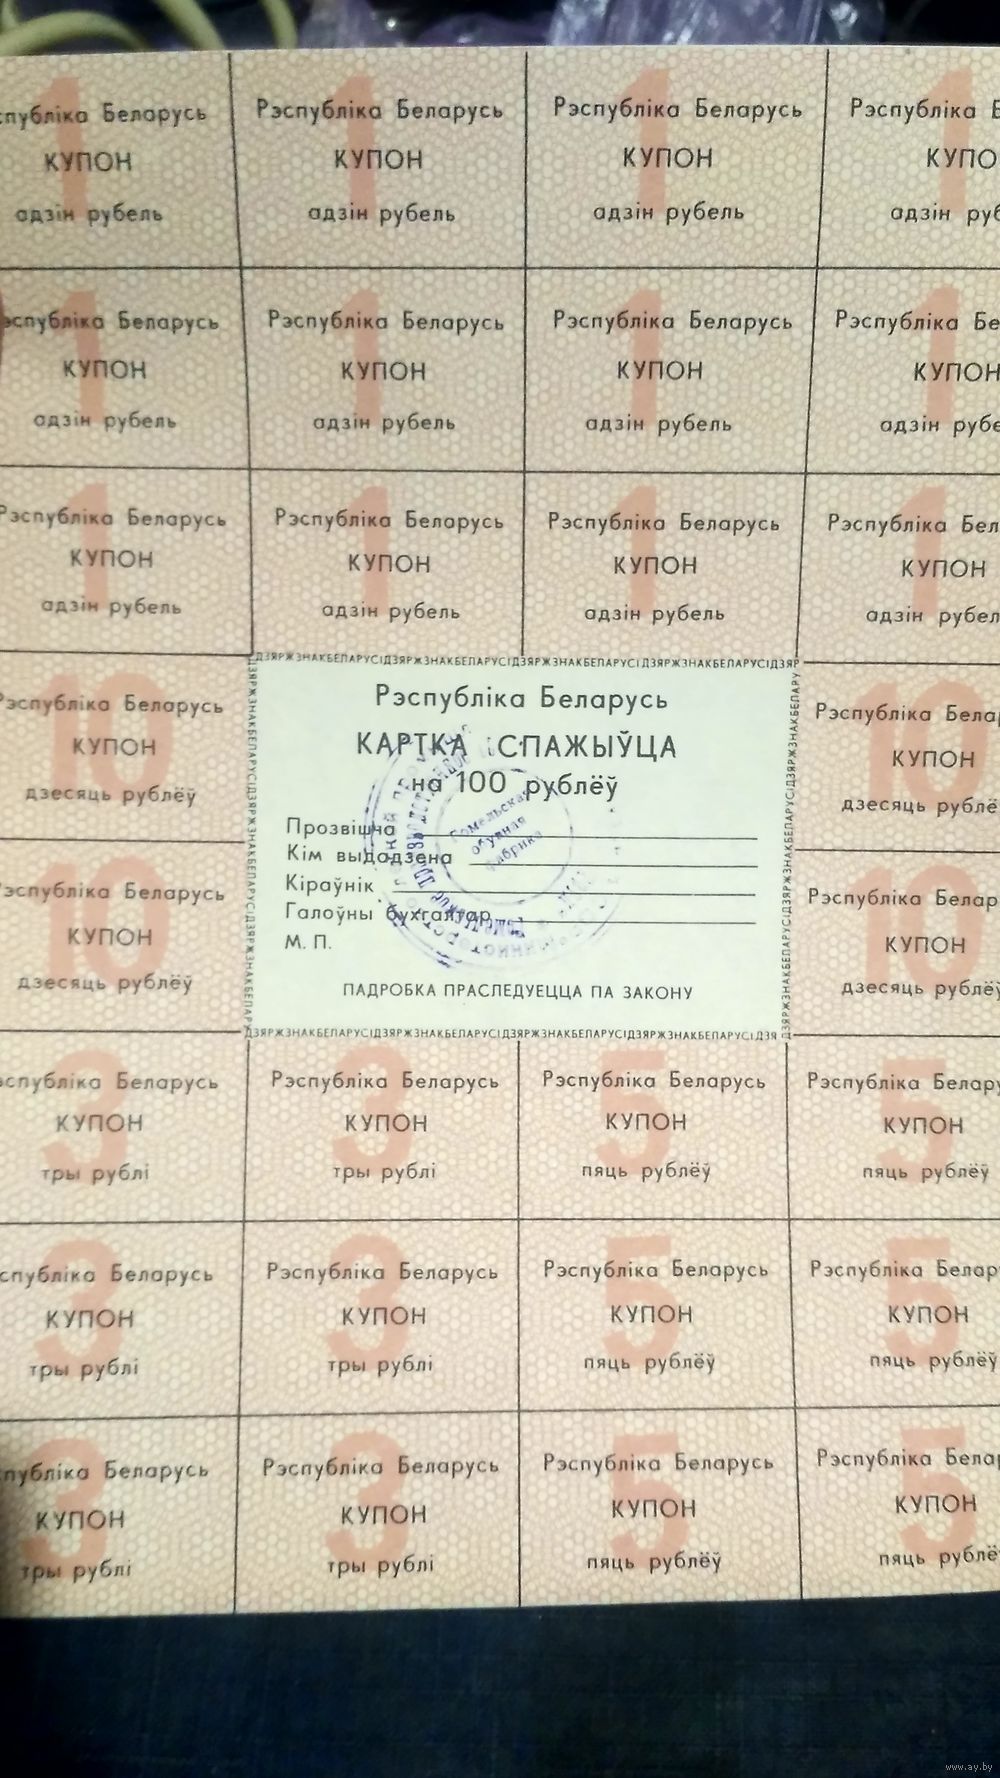 спубліка Беларусь Рэспубліка Беларусь Рэспубліка Беларусь Рэспубліка Б
КУПОН КУПОН КУПОН КУПО
адзін рубель адзін рубель адзін рубель адзін руб
1 1 1 1
эспубліка Беларусь Рэспубліка Беларусь Рэспубліка Беларусь Рэспубліка Бе
КУПОН КУПОН КУПОН КУПОН
адзін рубель адзін рубель адзін рубель адзін рубе
1 1 1 1
Рэспубліка Беларусь Рэспубліка Беларусь Рэспубліка Беларусь Рэспубліка Бел
КУПОН КУПОН КУПОН КУПОН
адзін рубель адзін рубель адзін рубель адзін рубел
1 1 1 1
ДЗЯРЖЗНАКБЕЛАРУСІДЗЯРЖЗНАКБЕЛАРУСІДЗЯРЖЗНАКБЕЛАРУСІДЗЯРЖЗНАКБЕЛАРУСІДЗЯР
Рэспубліка Беларусь
КУПОН
дзесяць рублёў
10
Рэспубліка Беларусь
КУПОН
дзесяць рублёў
10
Рэспубліка Беларусь
КАРТКА СПАЖЫЎЦА
на 100 рублёў
Прозвішча
Кім выдадзена
Кіраўнік
Галоўны бухгалтар
М. П.
ПАДРОБКА ПРАСЛЕДУЕЦЦА ПА ЗАКОНУ
Гомельская
обувная
фабрика
Рэспубліка Бела
КУПОН
дзесяць рублё
10
Рэспубліка Белар
КУПОН
дзесяць рублёў
10
ДЗЯРЖЗНАКБЕЛАРУСІДЗЯРЖЗНАКБЕЛАРУСІДЗЯРЖЗНАКБЕЛАРУСІДЗЯРЖЗНАКБЕЛАРУСІДЗЯ
эспубліка Беларусь Рэспубліка Беларусь Рэспубліка Беларусь Рэспубліка Белару
КУПОН КУПОН КУПОН КУПОН
тры рублі тры рублі пяць рублёў пяць рублёў
3 3 5 5
спубліка Беларусь Рэспубліка Беларусь Рэспубліка Беларусь Рэспубліка Белар
КУПОН КУПОН КУПОН КУПОН
тры рублі тры рублі пяць рублёў пяць рублёў
3 3 5 5
публіка Беларусь Рэспубліка Беларусь Рэспубліка Беларусь Рэспубліка Бела
КУПОН КУПОН КУПОН КУПОН
тры рублі тры рублі пяць рублёў пяць рублё
3 3 5 5
www.ay.by